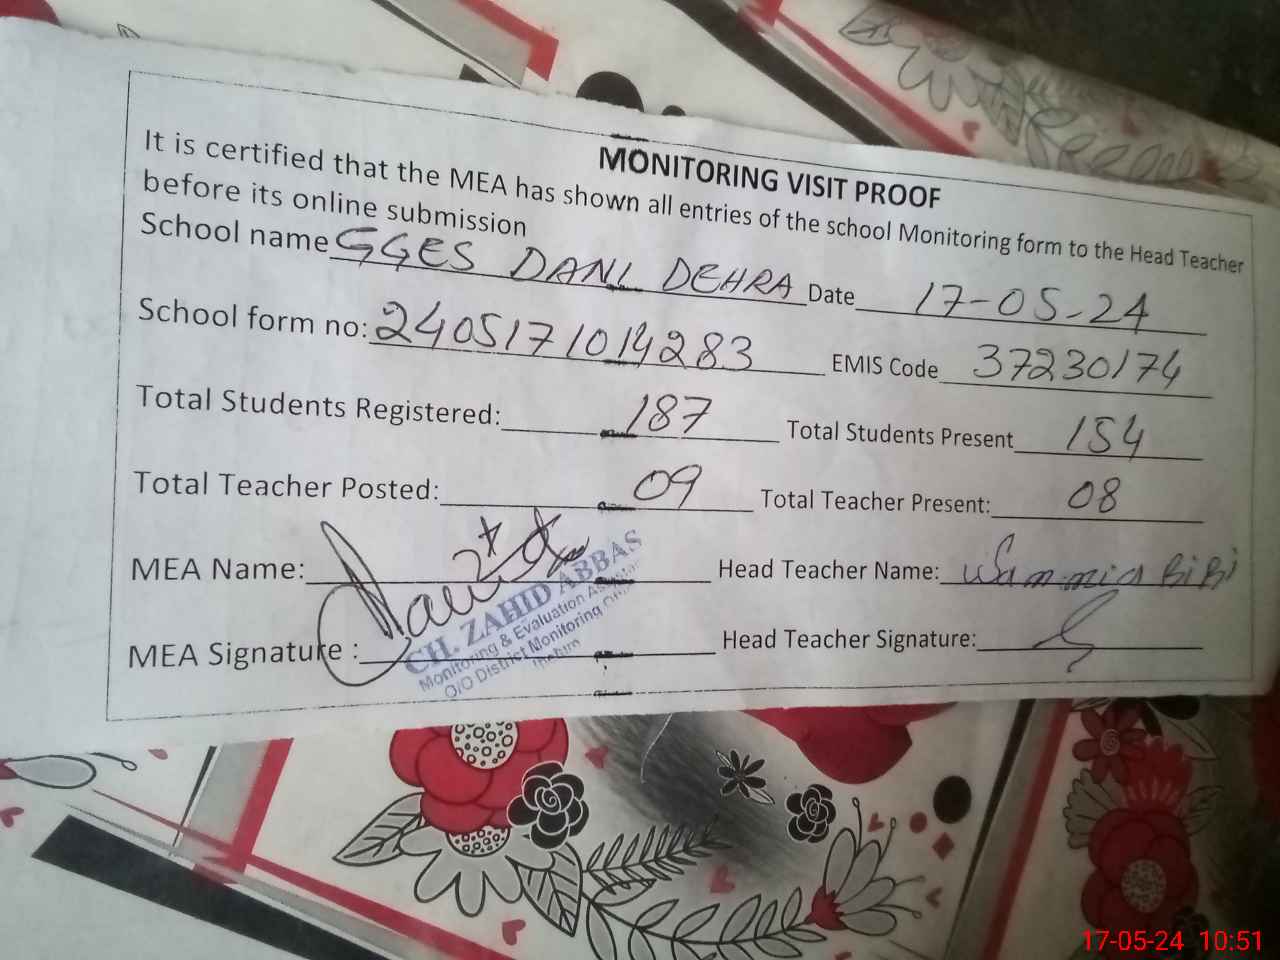 MONITORING VISIT PROOF
It is certified that the MEA has shown all entries of the school Monitoring form to the Head Teacher
before its online submission
School name GGES DANI DEHRA Date 17-05-24
School form no: 2405171014283 EMIS Code 37230174
Total Students Registered: 187 Total Students Present 154
Total Teacher Posted: 09 Total Teacher Present: 08
MEA Name: Head Teacher Name: Sammia BiBi
MEA Signature : Head Teacher Signature:
CH. ZAHID ABBAS
Monitoring & Evaluation
O/O District Monitoring
17-05-24 10:51